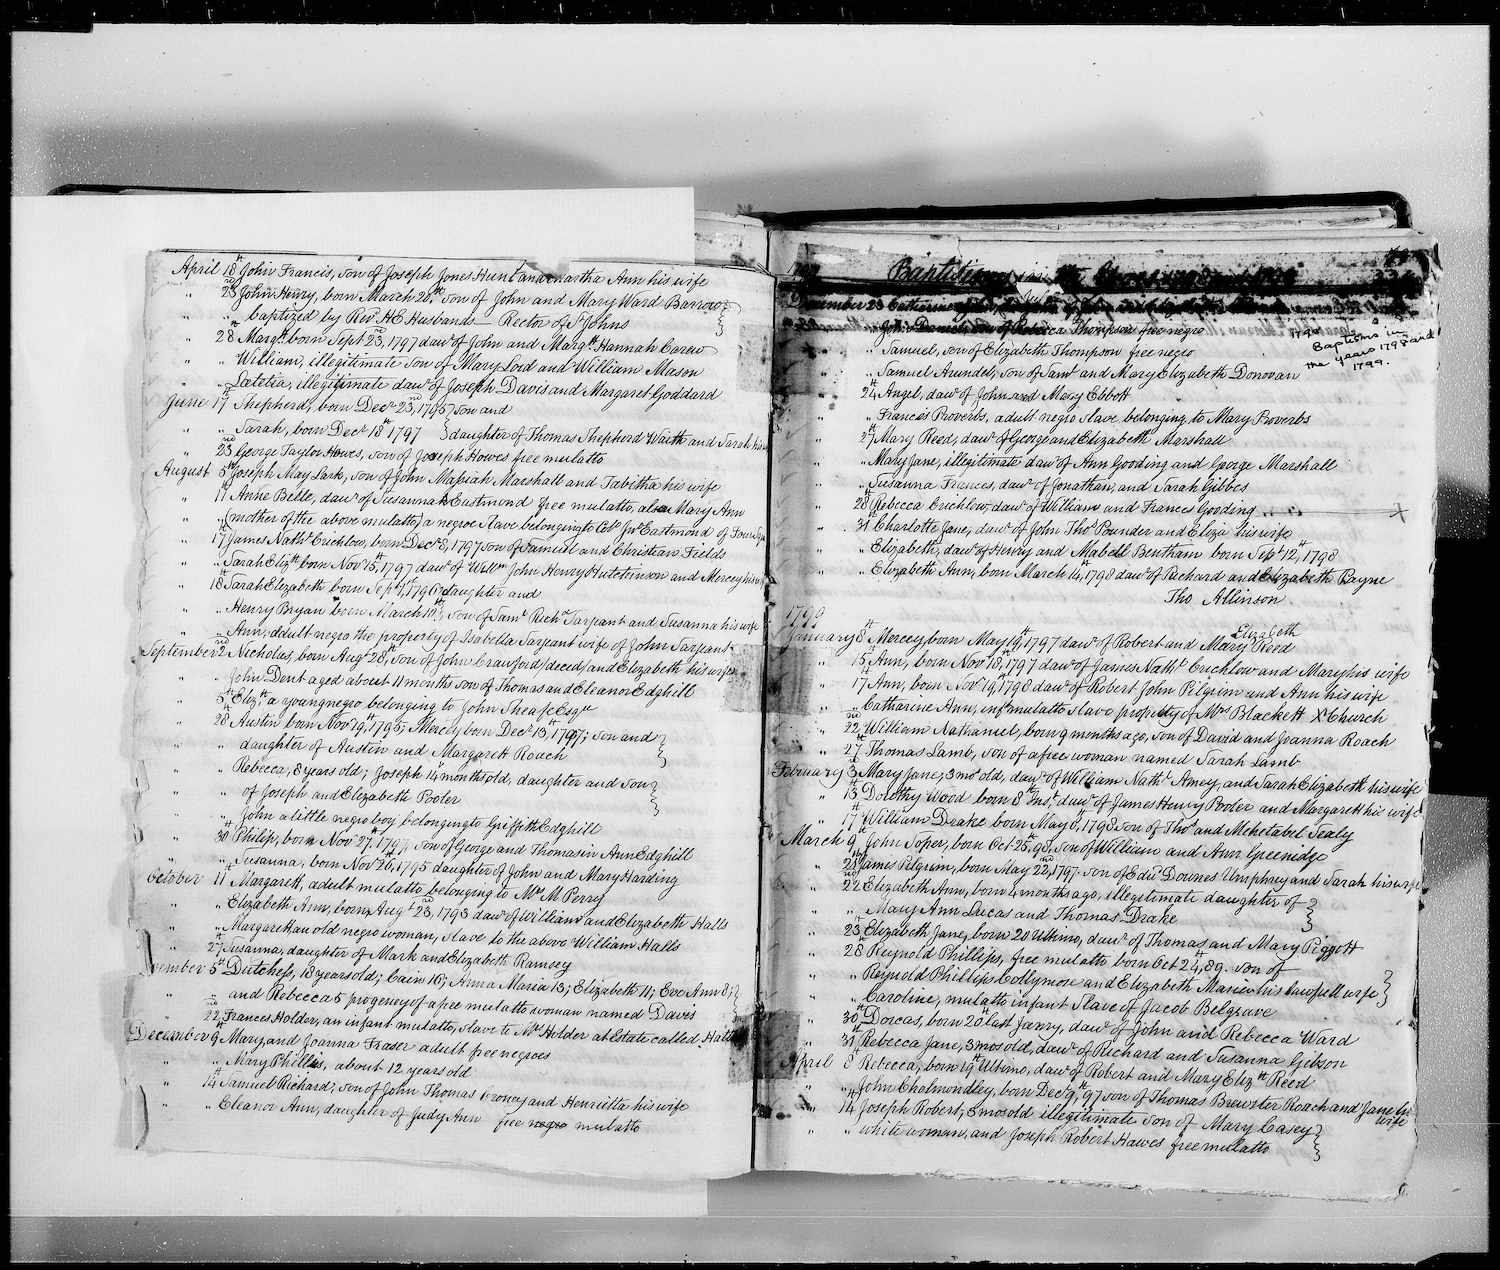 April 18th John Francis, son of Joseph Jones Hunt and Martha Ann his wife
" 23rd John Henry, born March 20th son of John and Mary Ward Barrow
" " baptized by Revd H E Husbands — Rector of St Johns
" 28th Margt born Sept 23rd, 1797 dawr of John and Margtt Hannah Carew
" " William, illegitimate son of Mary Lord and William Mason
" " Latetia, illegitimate dawr of Joseph Davis and Margaret Goddard
June 17th Shepherd, born Decr 23rd, 1795 son and
" " Sarah, born Decr 18th 1797 } daughter of Thomas Shepherd Waith and Sarah his
" 23rd George Taylor Howes, son of Joseph Howes free mulatto
August 5th Joseph May Lark, son of John Masiah Marshall and Tabitha his wife
" 11 Anne Belle, dawr of Susannah Eastmond free mulatto, also Mary Ann
" " (mother of the above mulatto) a negroe slave belonging to Coll Jno Eastmond of
" 17 James Nathl Crichlow, born Decr 8, 1797 son of Samuel and Christian Fields
" " Sarah Elizth born Novr 15th, 1797 dawr of Willm John Henry Hutchinson and Mercey his
" 18 Sarah Elizabeth born Sept 1st, 1796 daughter and
" " Henry Bryan born March 10th } son of Saml Richd Sargeant and Susanna his wife
" " Ann, adult negro the property of Isabella Sargeant wife of John Sargeant
September 2nd Nicholas, born Augt 28th, son of John Crawford (deced) and Elizabeth his wife
" " John Dent aged about 11 months son of Thomas and Eleanor Edghill
" 5th Elizth a young negro belonging to John Sheafe Esqr
" 28th Austin born Novr 19th, 1795; Mercey born Decr 13th, 1797; son and }
" " daughter of Austin and Margarett Roach }
" " Rebecca, 8 years old; Joseph 14 months old, daughter and son }
" " of Joseph and Elizabeth Pooler }
" " John a little negro boy belonging to Griffith Edghill
" 30th Philip, born Nov 27th, 1797 son of George and Thomasin Ann Edghill
" " Susanna, born Novr 26th, 1795 daughter of John and Mary Harding
October 11th Margarett, adult mulatto belonging to Mr M Perry
" " Elizabeth Ann, born Augt 23rd, 1793 dawr of William and Elizabeth Halls
" " Margarett an old negro woman, slave to the above William Halls
" 27 Susanna, daughter of Mark and Elizabeth Ramsey
vember 5th Dutchess, 18 years old; Cain 16; Anna Maria 13; Elizabeth 11; Eve Ann 8; }
" " and Rebecca 5 progeney of a free mulatto woman named Davis
" 22nd Frances Holder, an infant mulatto, slave to Mr Holder at Estate called Halls
December 9th Mary and Joanna Fraser adult free negroes
" " Mary Phillis, about 12 years old
" 14th Samuel Richard, son of John Thomas Croney and Henrietta his wife
" " Eleanor Ann, daughter of Judy Ann free negro mulatto
Baptisms in the
December 23 Catharine
" John Daniel, son of Rebecca Thompson free negro
" " Samuel, son of Elizabeth Thompson free negro
" " Samuel Arundel, son of Saml and Mary Elizabeth Donovan
Baptisms in
the years 1798 and
1799.
" 24th Angel, dawr of John and Mary Ebbott
" " Frances Proverbs, adult negro slave belonging to Mary Proverbs
" 27th Mary Reed, dawr of George and Elizabeth Marshall
" " Mary Jane, illegitimate dawr of Ann Gooding and George Marshall
" " Susanna Frances, dawr of Jonathan, and Sarah Gibbes
" 28th Rebecca Crichlow, dawr of William and Frances Gooding X
" 31st Charlotte Jane, dawr of John Thos Pounder and Eliza his wife
" " Elizabeth, dawr of Henry and Mabell Bentham born Sept 12th, 1798
" " Elizabeth Ann, born March 14th, 1798 dawr of Richard and Elizabeth Bayne
Tho Allinson
1799
January 8th Mercey born May 19th, 1797 dawr of Robert and Mary Elizabeth Reed
" 15th Ann, born Novr 18th, 1797 dawr of James Nathl Crichlow and Mary his wife
" 17th Ann, born Novr 19th, 1798 dawr of Robert John Pilgrim and Ann his wife
" " Catharine Ann, inft mulatto slave property of Mrs Blackett X Church
" 22nd William Nathaniel, born 9 months ago, son of David and Joanna Roach
" 27 Thomas Lamb, son of a free woman named Sarah Lamb
February 3rd Mary Jane, 3 mos old, dawr of William Nathl Amey, and Sarah Elizabeth his wife
" 13th Dorothy Wood born 8th Inst, dawr of James Henry Pooler and Margarett his wife
" 17th William Drake born May 8th, 1798 son of Thos and Mehetabel Sealy
March 9th John Soper, born Oct 25th 98, son of William and Ann Greenidge
" 21st James Pilgrim, born May 22nd, 1797 son of Edwd Downes Umphrey and Sarah his wife
" 22nd Elizabeth Ann, born 4 months ago, illegitimate daughter of }
" " Mary Ann Lucas and Thomas Drake }
" 23rd Elizabeth Jane, born 20 Ultimo, dawr of Thomas and Mary Piggott
" 28th Reynold Phillips, free mulatto born Oct 24th, 89. son of
" " Reynold Phillips Collymore and Elizabeth Maricer his lawfull wife }
" " Caroline, mulatto infant Slave of Jacob Belgrave
" 30th Dorcas, born 20th last Janry, dawr of John and Rebecca Ward
" 31st Rebecca Jane, 3 mos old, dawr of Richard and Susanna Gibson
April 8th Rebecca, born 19th Ultimo, dawr of Robert and Mary Elizth Reed
" " John Cholmondley, born Decr 9th, 97 son of Thomas Brewster Roach and Jane his wife
" 14th Joseph Robert, 3 mos old illegitimate son of Mary Casey }
" " white woman, and Joseph Robert Hawes free mulatto }